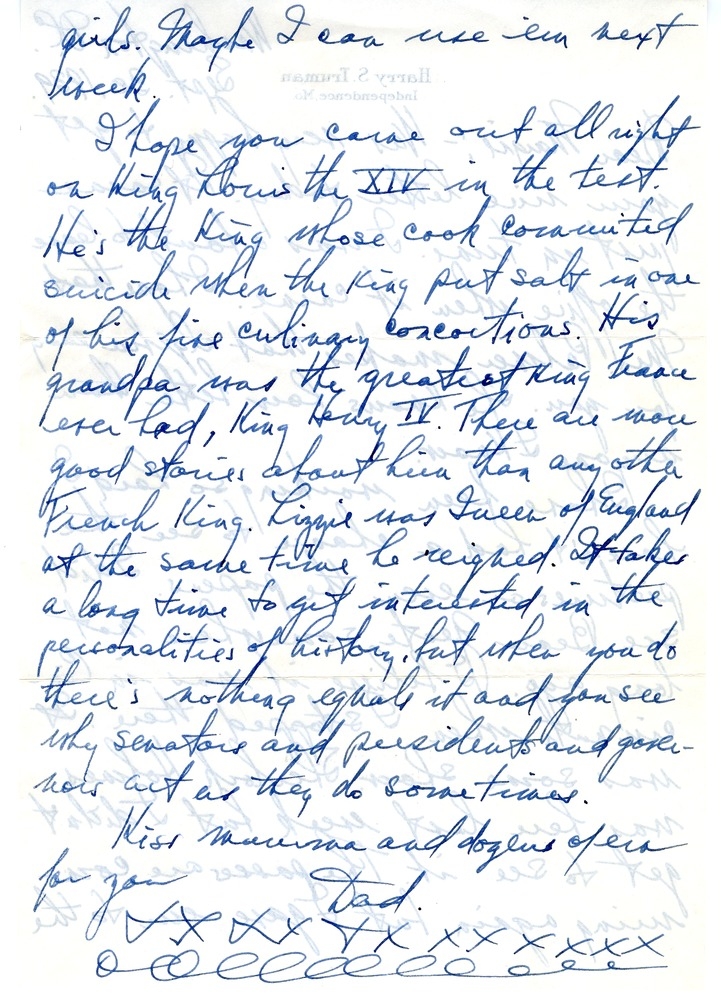 girls. Maybe I can use 'em next
week.
Harry S. Truman
Independence, Mo.
I hope you came out all right
on King Louis the XIV in the test.
He's the King whose cook commited
suicide when the King put salt in one
of his fine culinary concoctions. His
grandpa was the greatest King France
ever had, King Henry IV. There are more
good stories about him than any other
French King. Lizzie was Queen of England
at the same time he reigned. It takes
a long time to get interested in the
personalities of history, but when you do
there's nothing equals it and you see
why senators and presidents and gover-
nors act as they do sometimes.
Kiss mamma and dozens of em
for you
Dad.
XX XX XX XX X XXXX